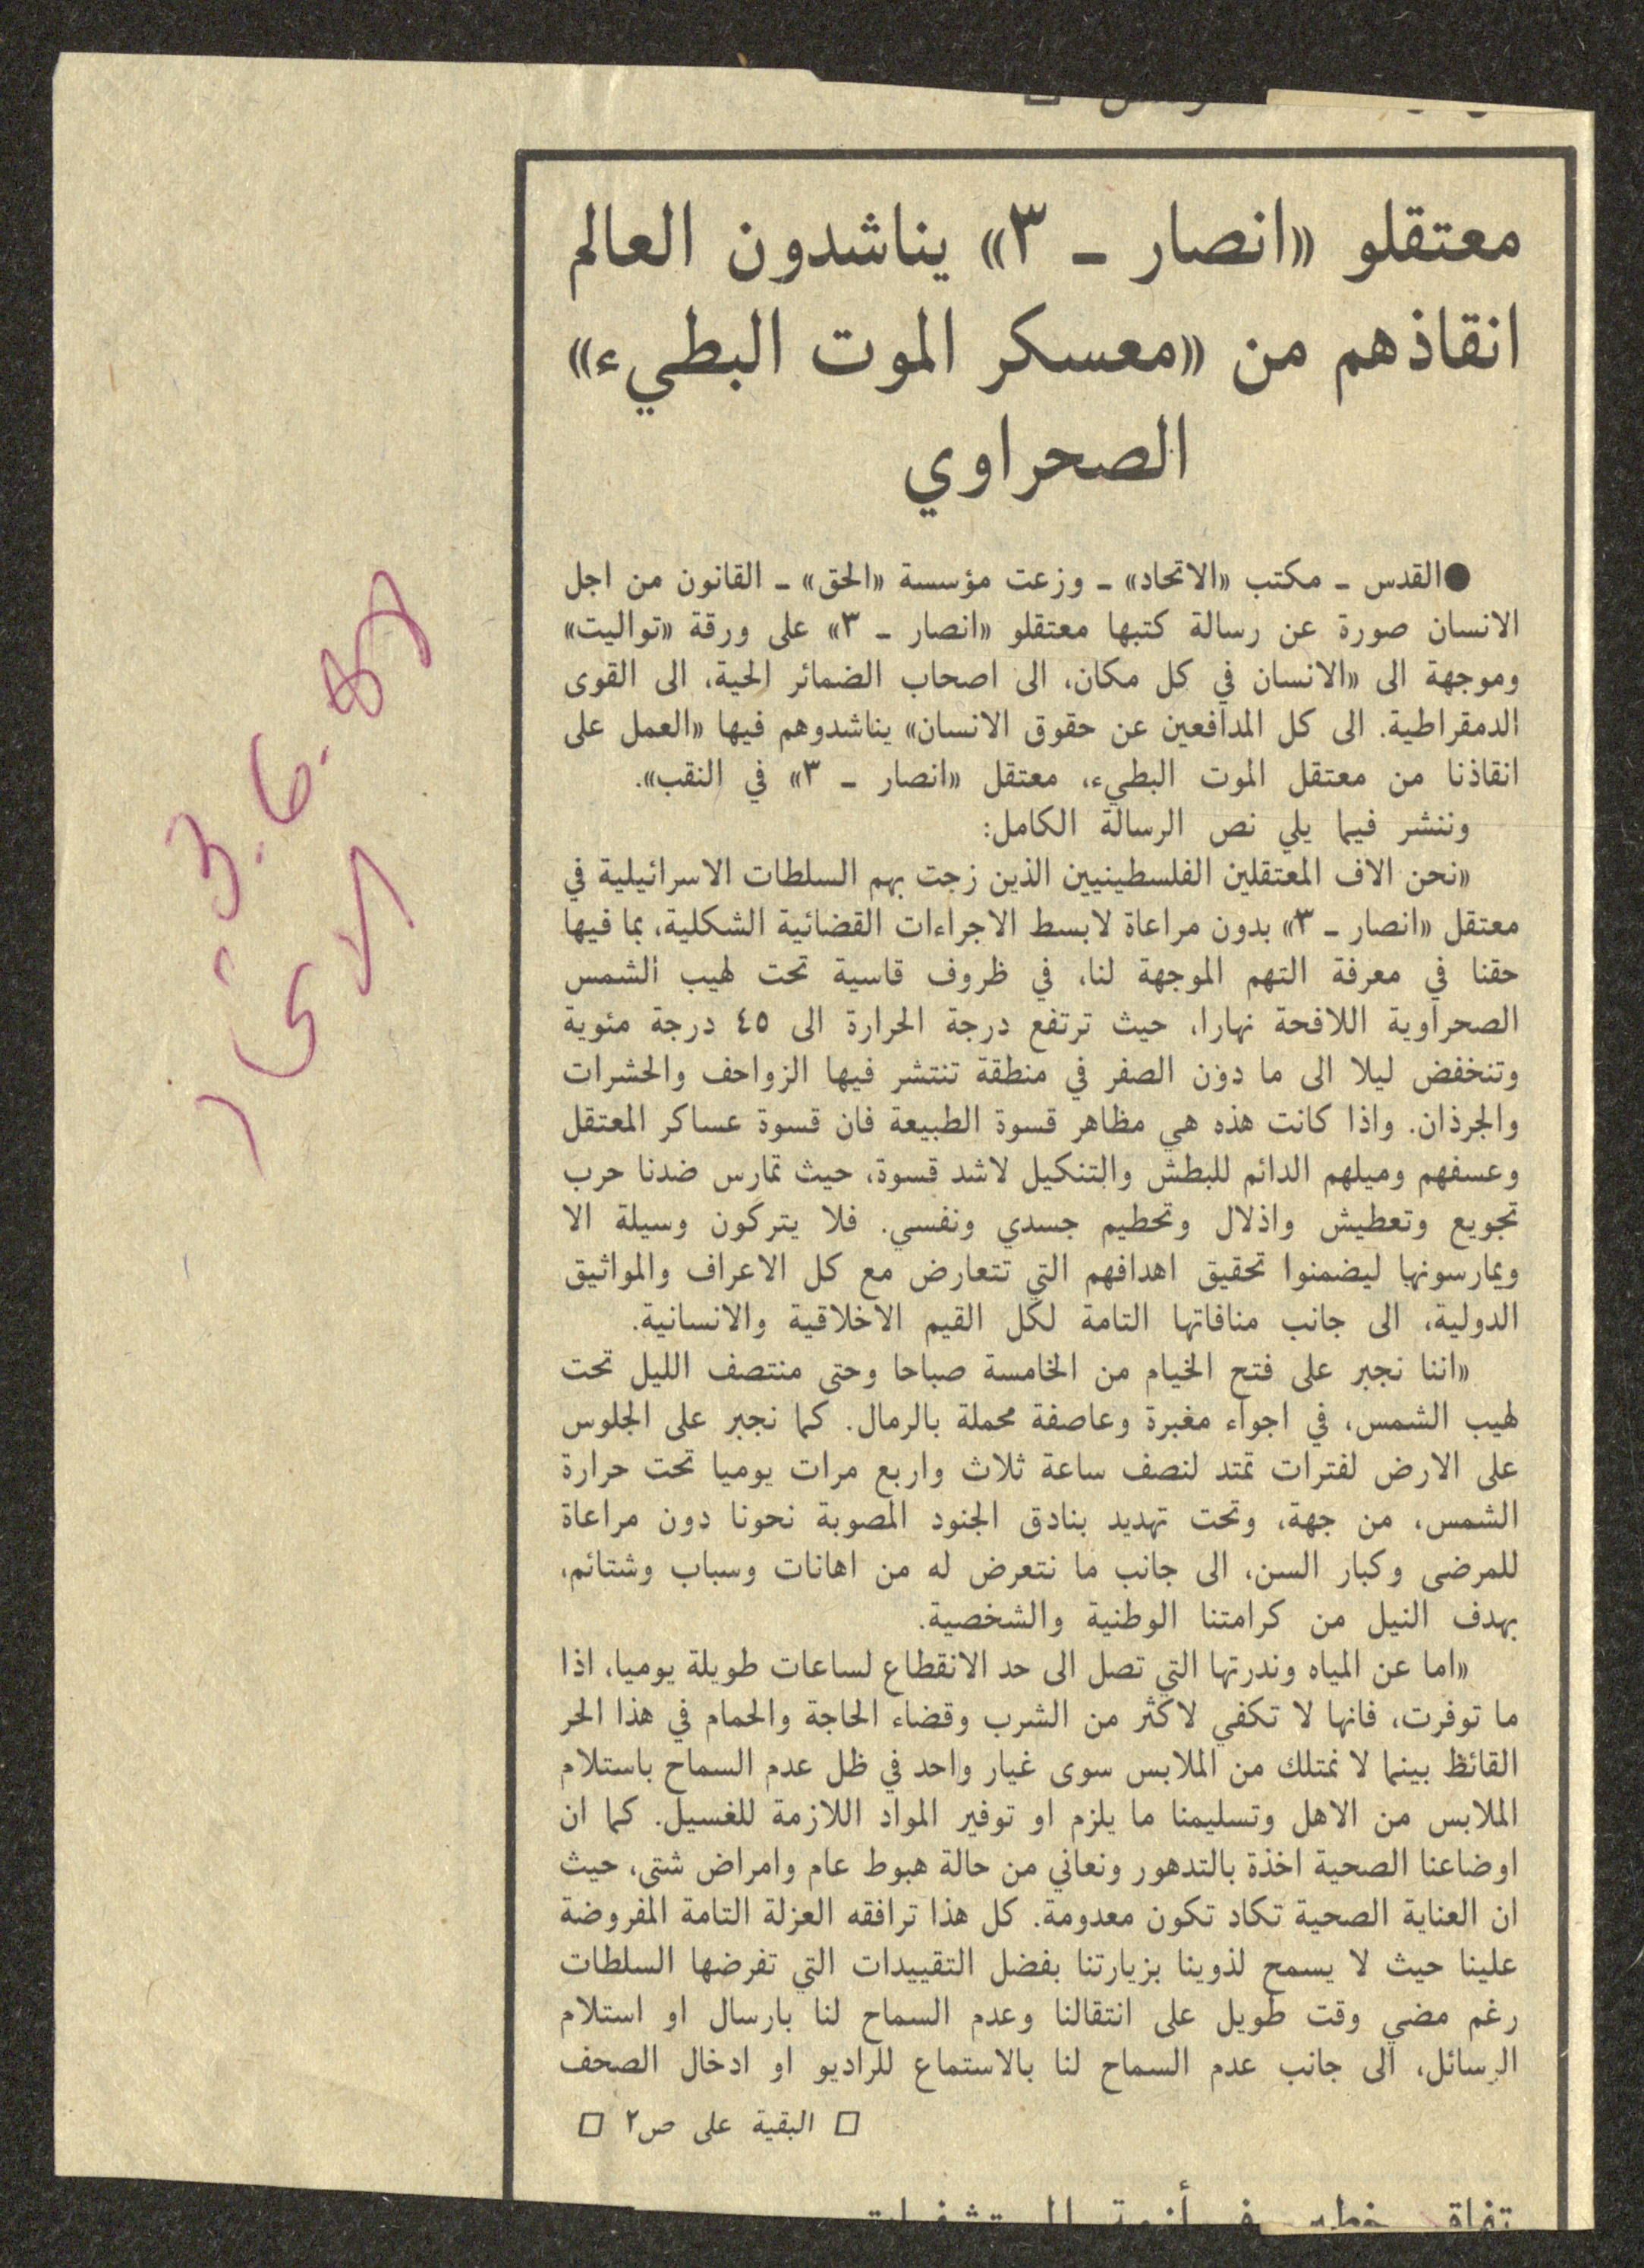 معتقلو «انصار ـ ٣» يناشدون العالم
انقاذهم من «معسكر الموت البطيء»
الصحراوي
●القدس ـ مكتب «الاتحاد» ـ وزعت مؤسسة «الحق» ـ القانون من اجل
الانسان صورة عن رسالة كتبها معتقلو «انصار ـ ٣» على ورقة «تواليت»
وموجهة الى «الانسان في كل مكان، الى اصحاب الضمائر الحية، الى القوى
الدمقراطية. الى كل المدافعين عن حقوق الانسان» يناشدوهم فيها «العمل على
انقاذنا من معتقل الموت البطيء، معتقل «انصار ـ ٣» في النقب».
وننشر فيما يلي نص الرسالة الكامل:
«نحن الاف المعتقلين الفلسطينيين الذين زجت بهم السلطات الاسرائيلية في
معتقل «انصار ـ ٣» بدون مراعاة لابسط الاجراءات القضائية الشكلية، بما فيها
حقنا في معرفة التهم الموجهة لنا، في ظروف قاسية تحت لهيب الشمس
الصحراوية اللافحة نهارا، حيث ترتفع درجة الحرارة الى ٤٥ درجة مئوية
وتنخفض ليلا الى ما دون الصفر في منطقة تنتشر فيها الزواحف والحشرات
والجرذان. واذا كانت هذه هي مظاهر قسوة الطبيعة فان قسوة عساكر المعتقل
وعسفهم وميلهم الدائم للبطش والتنكيل لاشد قسوة، حيث تمارس ضدنا حرب
تجويع وتعطيش واذلال وتحطيم جسدي ونفسي. فلا يتركون وسيلة الا
ويمارسونها ليضمنوا تحقيق اهدافهم التي تتعارض مع كل الاعراف والمواثيق
الدولية، الى جانب منافاتها التامة لكل القيم الاخلاقية والانسانية.
«اننا نجبر على فتح الخيام من الخامسة صباحا وحتى منتصف الليل تحت
لهيب الشمس، في اجواء مغبرة وعاصفة محملة بالرمال. كما نجبر على الجلوس
على الارض لفترات تمتد لنصف ساعة ثلاث واربع مرات يوميا تحت حرارة
الشمس، من جهة، وتحت تهديد بنادق الجنود المصوبة نحونا دون مراعاة
للمرضى وكبار السن، الى جانب ما نتعرض له من اهانات وسباب وشتائم،
بهدف النيل من كرامتنا الوطنية والشخصية.
«اما عن المياه وندرتها التي تصل الى حد الانقطاع لساعات طويلة يوميا، اذا
ما توفرت، فانها لا تكفي لاكثر من الشرب وقضاء الحاجة والحمام في هذا الحر
القائظ بينما لا نمتلك من الملابس سوى غيار واحد في ظل عدم السماح باستلام
الملابس من الاهل وتسليمنا ما يلزم او توفير المواد اللازمة للغسيل. كما ان
اوضاعنا الصحية اخذة بالتدهور ونعاني من حالة هبوط عام وامراض شتى، حيث
ان العناية الصحية تكاد تكون معدومة. كل هذا ترافقه العزلة التامة المفروضة
علينا حيث لا يسمح لذوينا بزيارتنا بفضل التقييدات التي تفرضها السلطات
رغم مضي وقت طويل على انتقالنا وعدم السماح لنا بارسال او استلام
الرسائل، الى جانب عدم السماح لنا بالاستماع للراديو او ادخال الصحف
□ البقية على ص٢ □